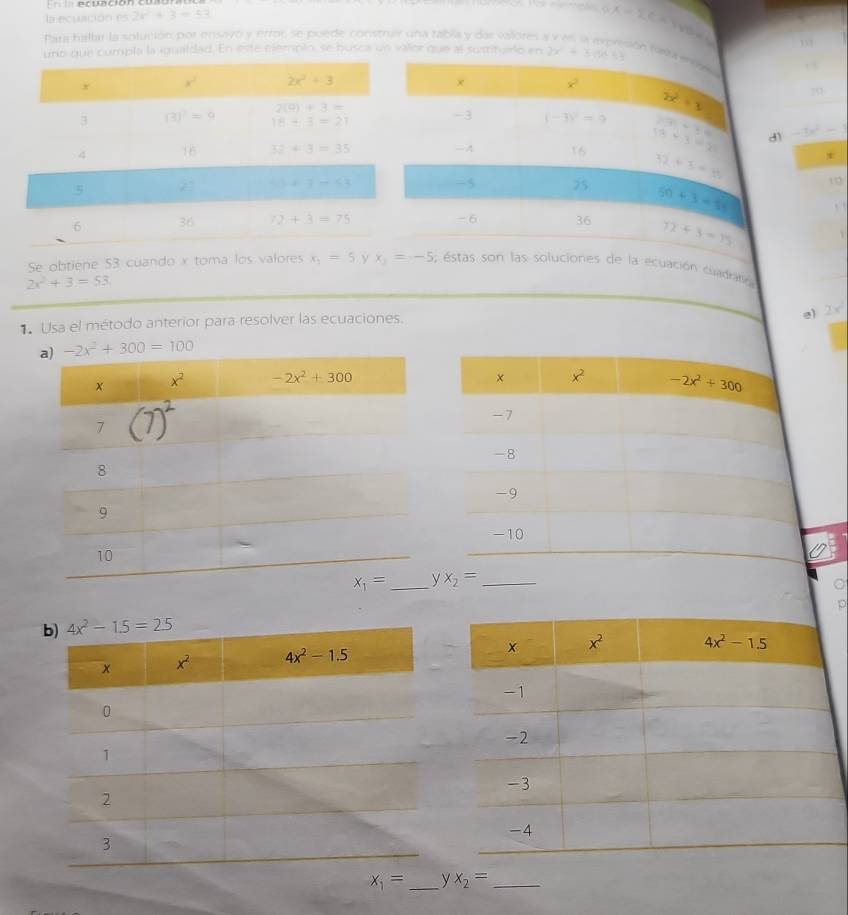 En la ecuación cuadrática
la ecuación es 2x² + 3 = 53
Para hallar la solución por ensayo y error, se puede construir una tabla y dar valores a x en la expresión hasta
uno que cumpla la igualdad. En este ejemplo, se busca un valor que al sustituirlo en 2x² + 3 dé 53
x x² 2x² + 3
3 (3)² = 9 2(9) + 3 = 18 + 3 = 21
4 16 32 + 3 = 35
5 25 50 + 3 = 53
6 36 72 + 3 = 75
x x² 2x² + 3
-3 (-3)² = 9 2(9) + 3 = 18 + 3 = 21
-4 16 32 + 3 = 35
-5 25 50 + 3 = 53
-6 36 72 + 3 = 75
Se obtiene 53 cuando x toma los valores x₁ = 5 y x₂ = -5; éstas son las soluciones de la ecuación cuadrática
2x² + 3 = 53.
1. Usa el método anterior para resolver las ecuaciones.
a) -2x² + 300 = 100
x x² -2x² + 300
7 (7)²
8
9
10
x x² -2x² + 300
-7
-8
-9
-10
x₁ = ____ y x₂ = ____
b) 4x² - 1.5 = 2.5
x x² 4x² - 1.5
0
1
2
3
x x² 4x² - 1.5
-1
-2
-3
-4
x₁ = ____ y x₂ = ____
d)
x
10
e) 2x²